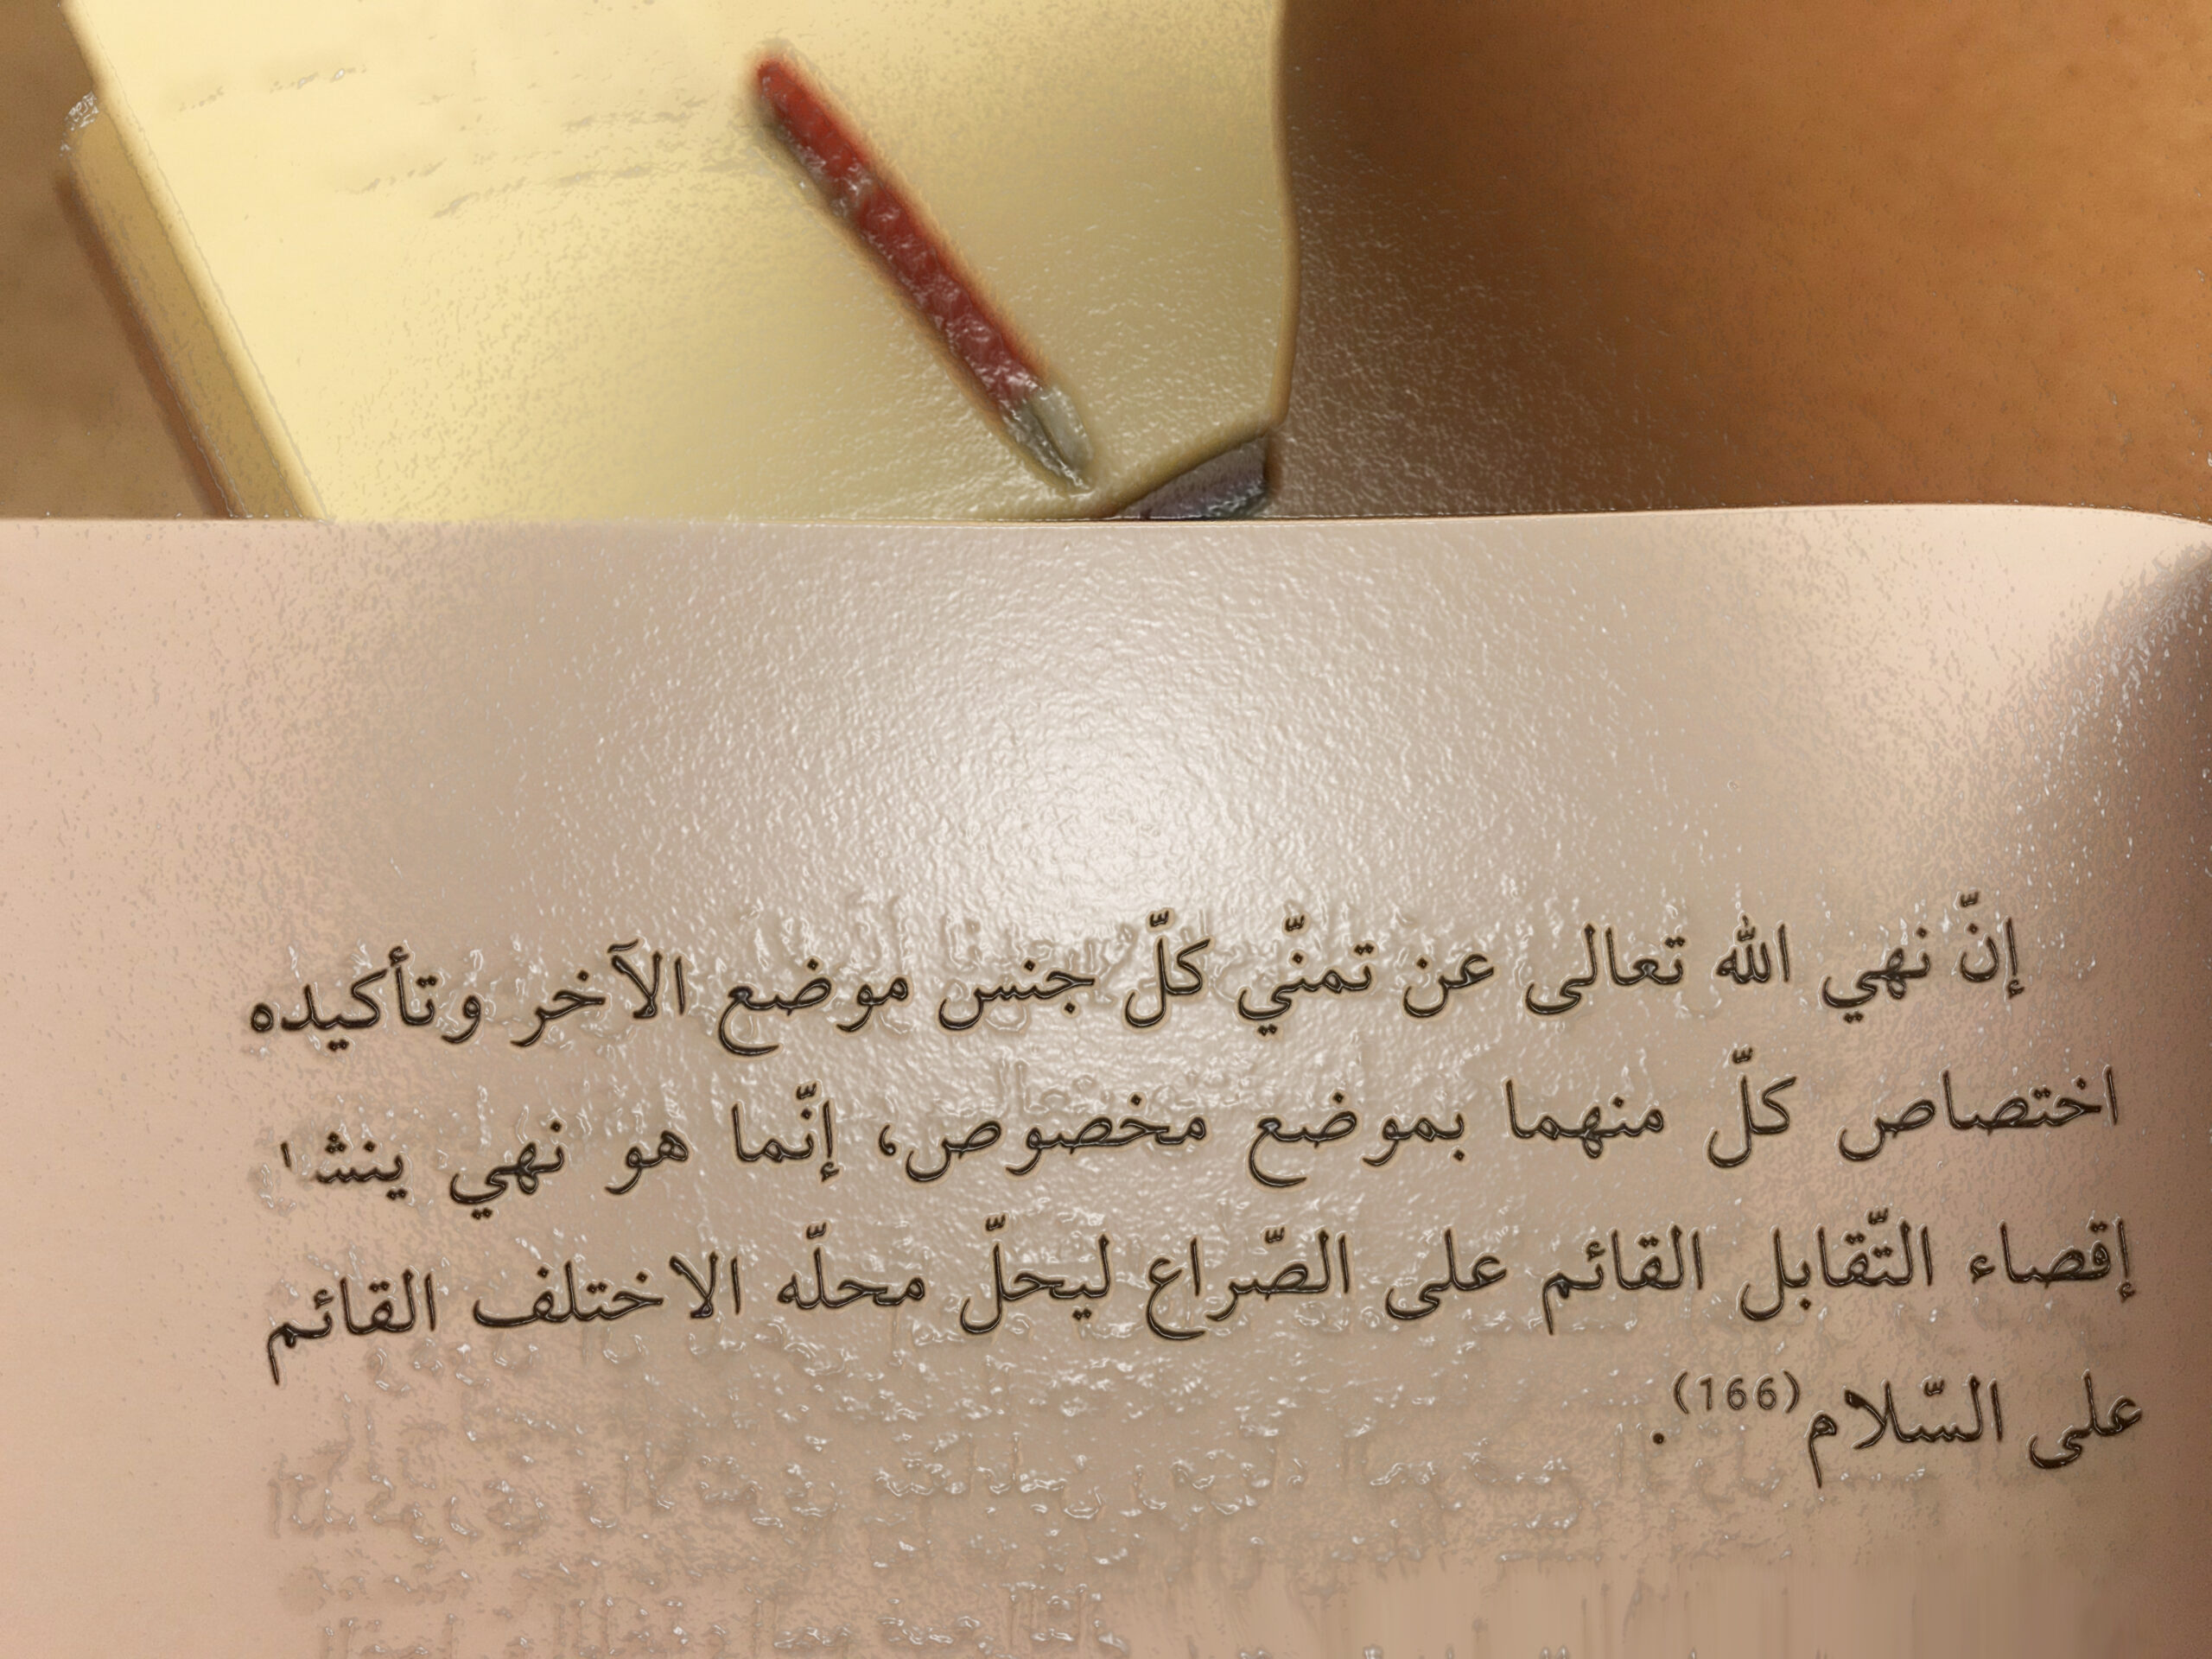 إنّ نهي الله تعالى عن تمنّي كلّ جنس موضع الآخر وتأكيده
اختصاص كلّ منهما بموضع مخصوص، إنّما هو نهي
إقصاء التّقابل القائم على الصّراع ليحلّ محلّه الاختلف القائم
على السّلام(166).